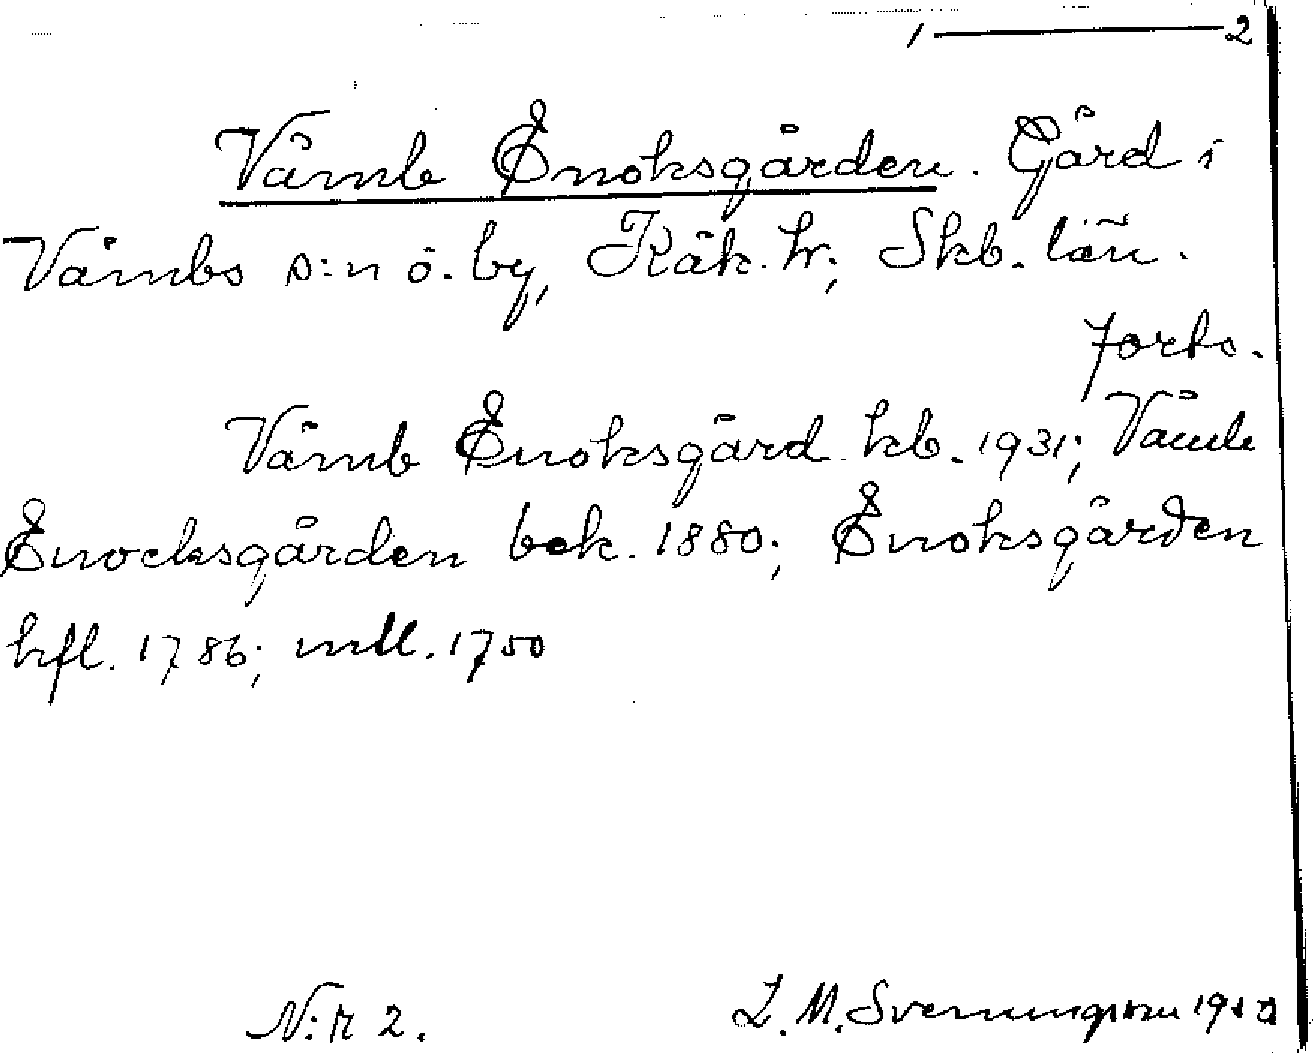 1 — 2
Våmb Enoksgården. Gård i
Våmbs s:n ö. by, Kåk. hr; Skb. län.
forts.
Våmb Enoksgård kb. 1931; Våmb
Enocksgården bek. 1880; Enoksgården
hfl. 1786; mtl. 1750
N:r 2. L. M. Svenungsson